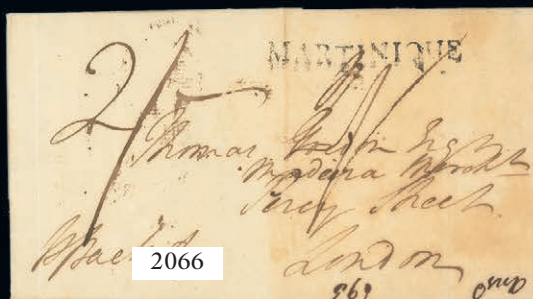 MARTINIQUE
2/5
Thomas Esqr
Madeira Mercht
Percy Street
London
2066